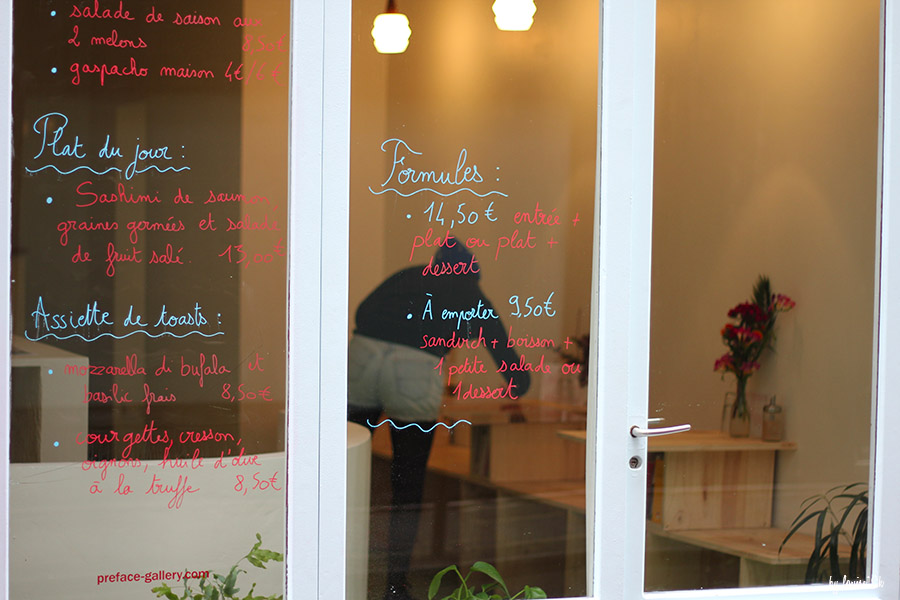 • salade de saison aux
2 melons 8,50€
• gaspacho maison 4€/6€
Plat du jour :
• Sashimi de saumon,
graines germées et salade
de fruit salé. 13,00€
Assiette de toasts :
• mozzarella di bufala et
basilic frais 8,50€
• courgettes, cresson,
oignons, huile d'olive
à la truffe 8,50€
preface-gallery.com
Formules :
• 14,50€ entrée +
plat ou plat +
dessert
• À emporter 9,50€
sandwich + boisson +
1 petite salade ou
1 dessert